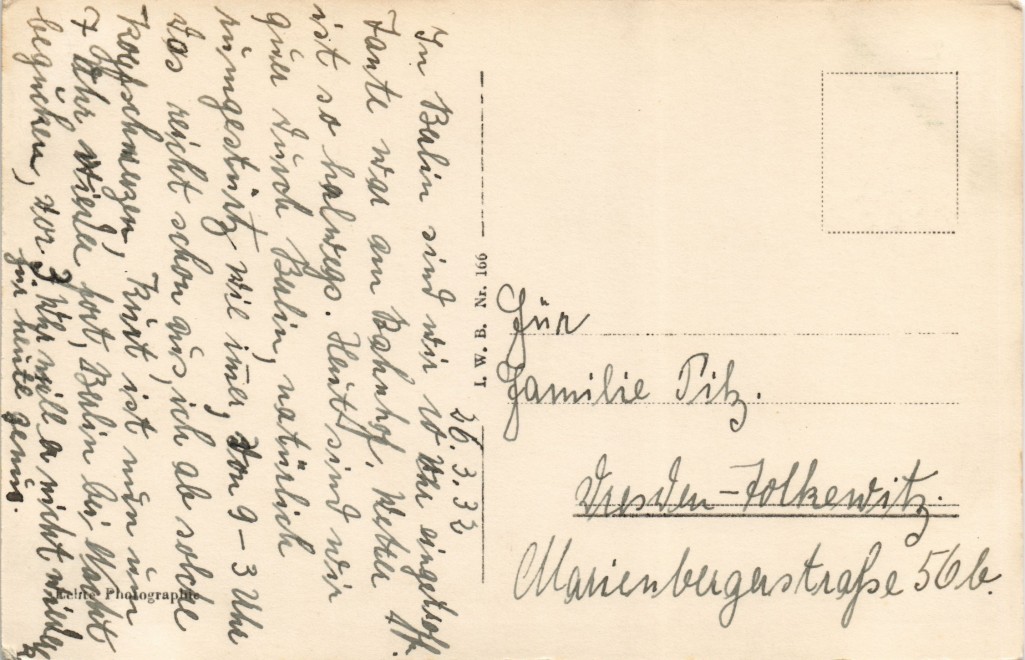 26.3.32
In Berlin sind wir 10 Uhr eingetroff.
Tante war am Bahnhof. Wetter
ist so halwegs. Heut sind wir
quer durch Berlin, natürlich
rumgestürtz wie immer, von 9-3 Uhr
das reicht schon aus, ich ab solche
Kopfschmerzen, Kurt ist nun um
7 Uhr wieder fort, Berlin bei Nacht
begucken, vor 3. Uhr will a nicht wieder
für heute genug.
I. W. B. Nr. 166
Für
Familie Pilz.
Dresden-Tolkewitz.
Marienbergerstraße 56b.
Echte Photographie